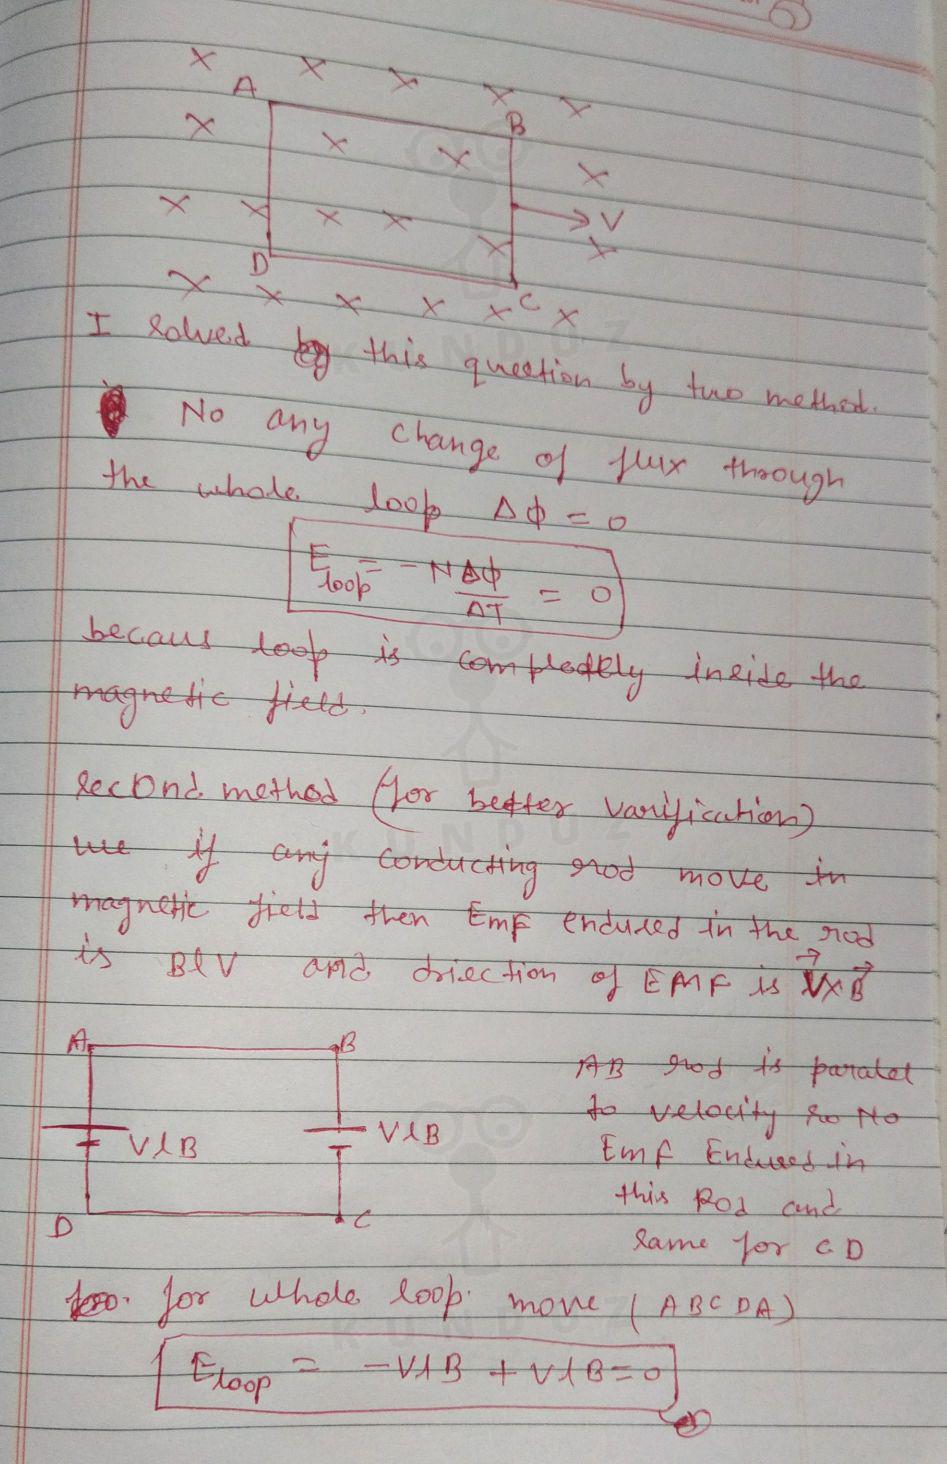 X X X X X
A
B
X X X X
X X X X V
X X
D
C
X X X X X X
I solved this question by two method.
No any change of flux through
the whole loop Δφ = 0
E loop = - N Δφ / ΔT = 0
becaus loop is completely inside the
magnetic field.
KUNDUZ
second method (for better varification)
KUNDUZ
if any conducting rod move in
magnetic field then EmF endused in the rod
is BlV and driection of EMF is V⃗×B⃗
A B
AB rod is paralel
to velocity so No
VlB VlB
EmF Endused in
this Rod and
D C
same for CD
for whole loop. move (ABCDA)
KUNDUZ
Eloop = -VlB + VlB = 0